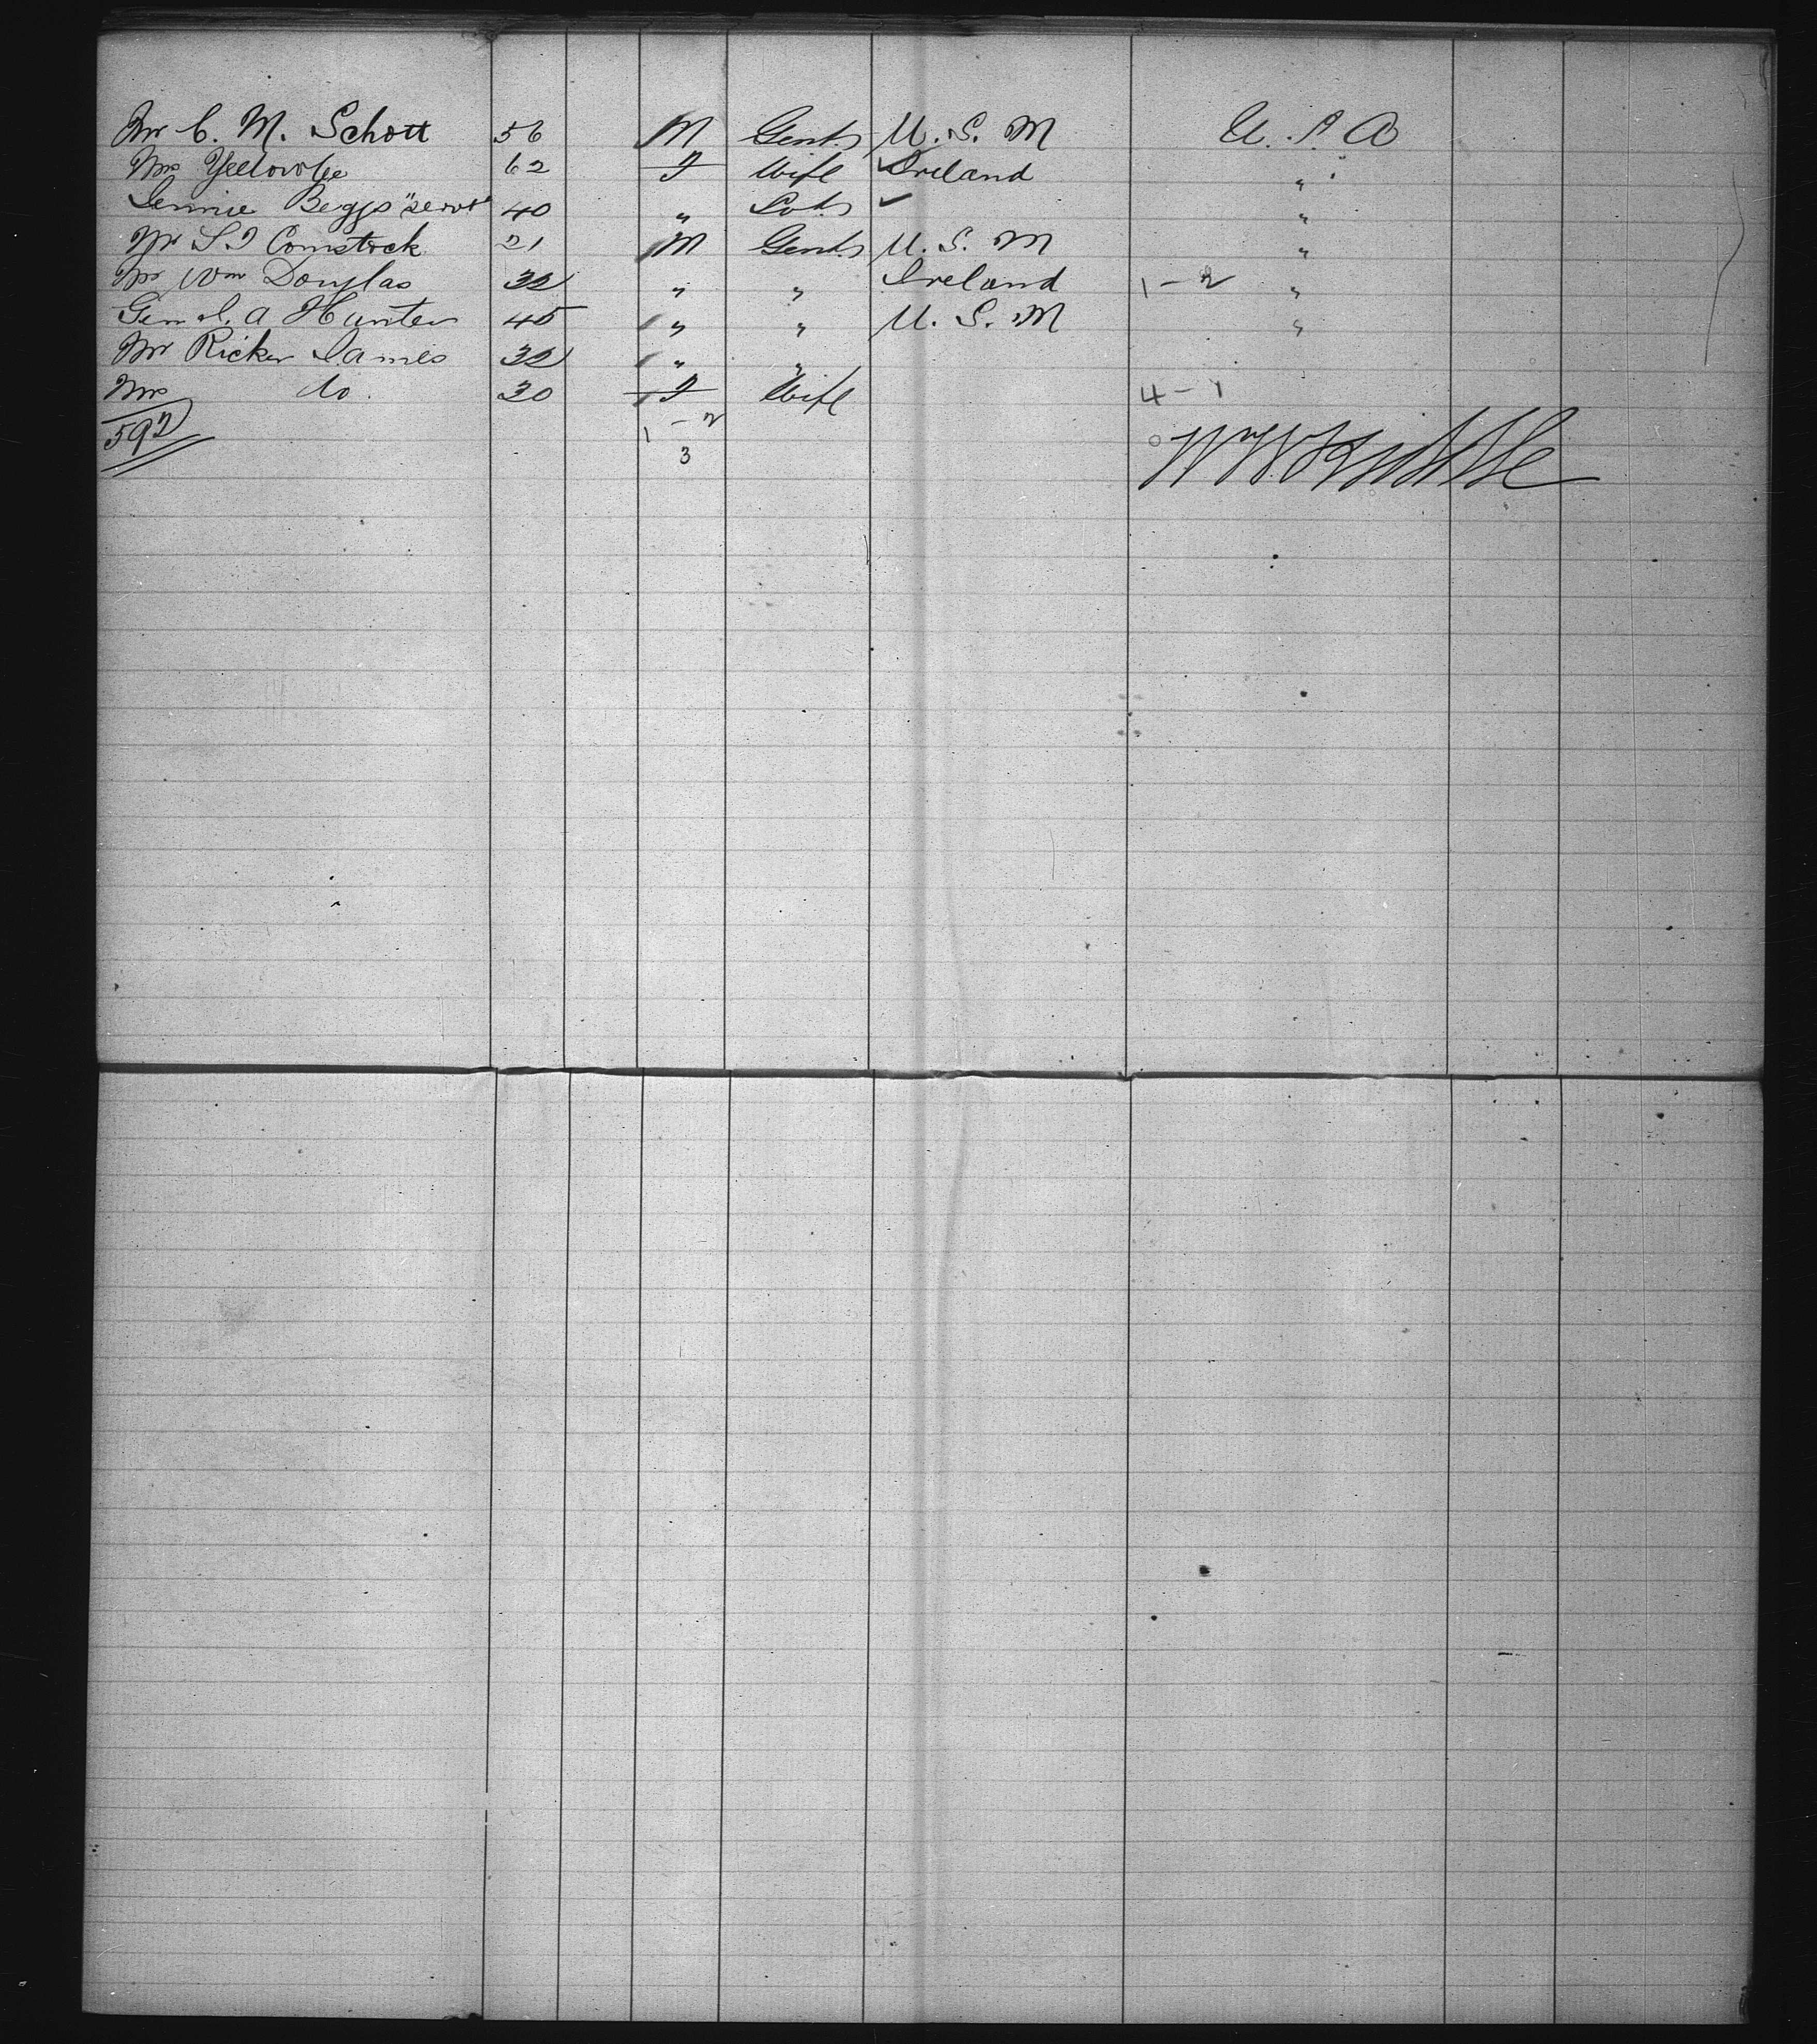 Mr C. M. Schott 56 M Gent. U. S. M U. S. A
Mrs 62 F Wife Ireland "
Jennie Beggs "servt" 40 " "
Mr S. J Comstock 21 M Gent. U. S. M "
Mr Wm Douglas 32 " " Ireland 1-2 "
Genl. A Hunter 45 " " U. S. M "
Mr Ricker James 32 " "
Mrs Do. 30 F Wife 4-1
592 1-2
3